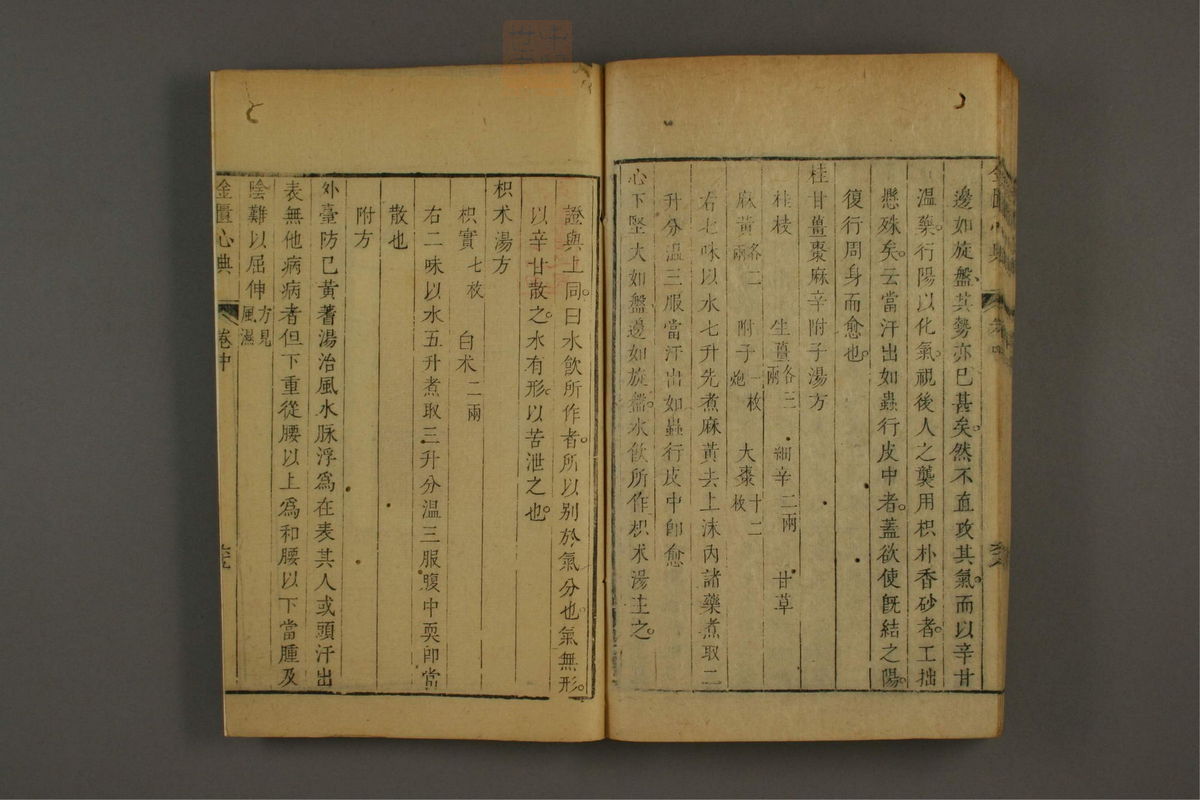 邊如旋盤其勢亦已甚矣然不直攻其氣而以辛甘
温藥行陽以化氣視後人之襲用枳朴香砂者工拙
懸殊矣云當汗出如蟲行皮中者蓋欲使既結之陽
復行周身而愈也
桂甘薑棗麻辛附子湯方
桂枝 生薑各三兩 細辛二兩 甘草
麻黃各二兩 附子一枚炮 大棗十二枚
右七味以水七升先煮麻黃去上沫內諸藥煮取二
升分温三服當汗出如蟲行皮中卽愈
心下堅大如盤邊如旋盤水飲所作枳朮湯主之
證與上同曰水飲所作者所以别於氣分也氣無形
以辛甘散之水有形以苦泄之也
枳朮湯方
枳實七枚 白朮二兩
右二味以水五升煮取三升分温三服腹中耎卽當
散也
附方
外臺防已黃蓍湯治風水脉浮爲在表其人或頭汗出
表無他病病者但下重從腰以上爲和腰以下當腫及
陰難以屈伸方見風濕
金匱心典 卷中